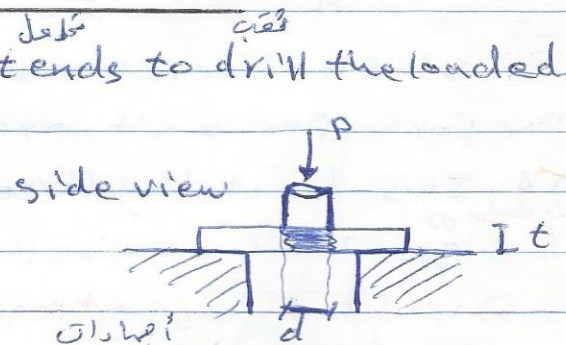 ثقب
tends to drill the loaded
P
side view
t
d
أجهادات